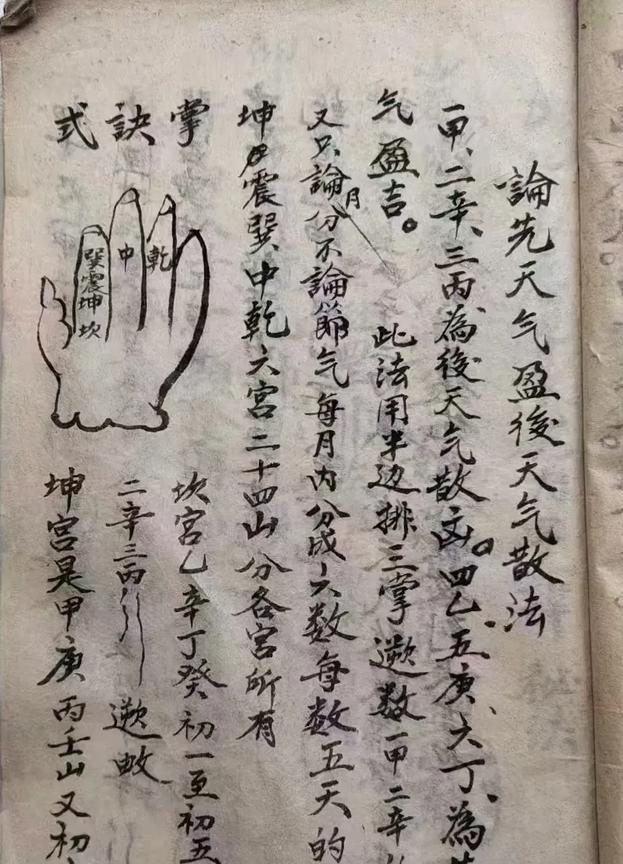 論先天气盈後天气散法
一甲、二辛、三丙、為後天气散凶。四乙、五庚、六丁、為
气盈吉。此法用半边排三掌遊数一甲二辛
又只論月分不論節气每月内分成六数每数五天的
坤震巽中乾六宮二十四山分各宮所有
掌訣式
乾
中
巽震坤坎
坎宮乙辛丁癸初一至初五
二辛三丙
坤宮是甲庚丙壬山又初